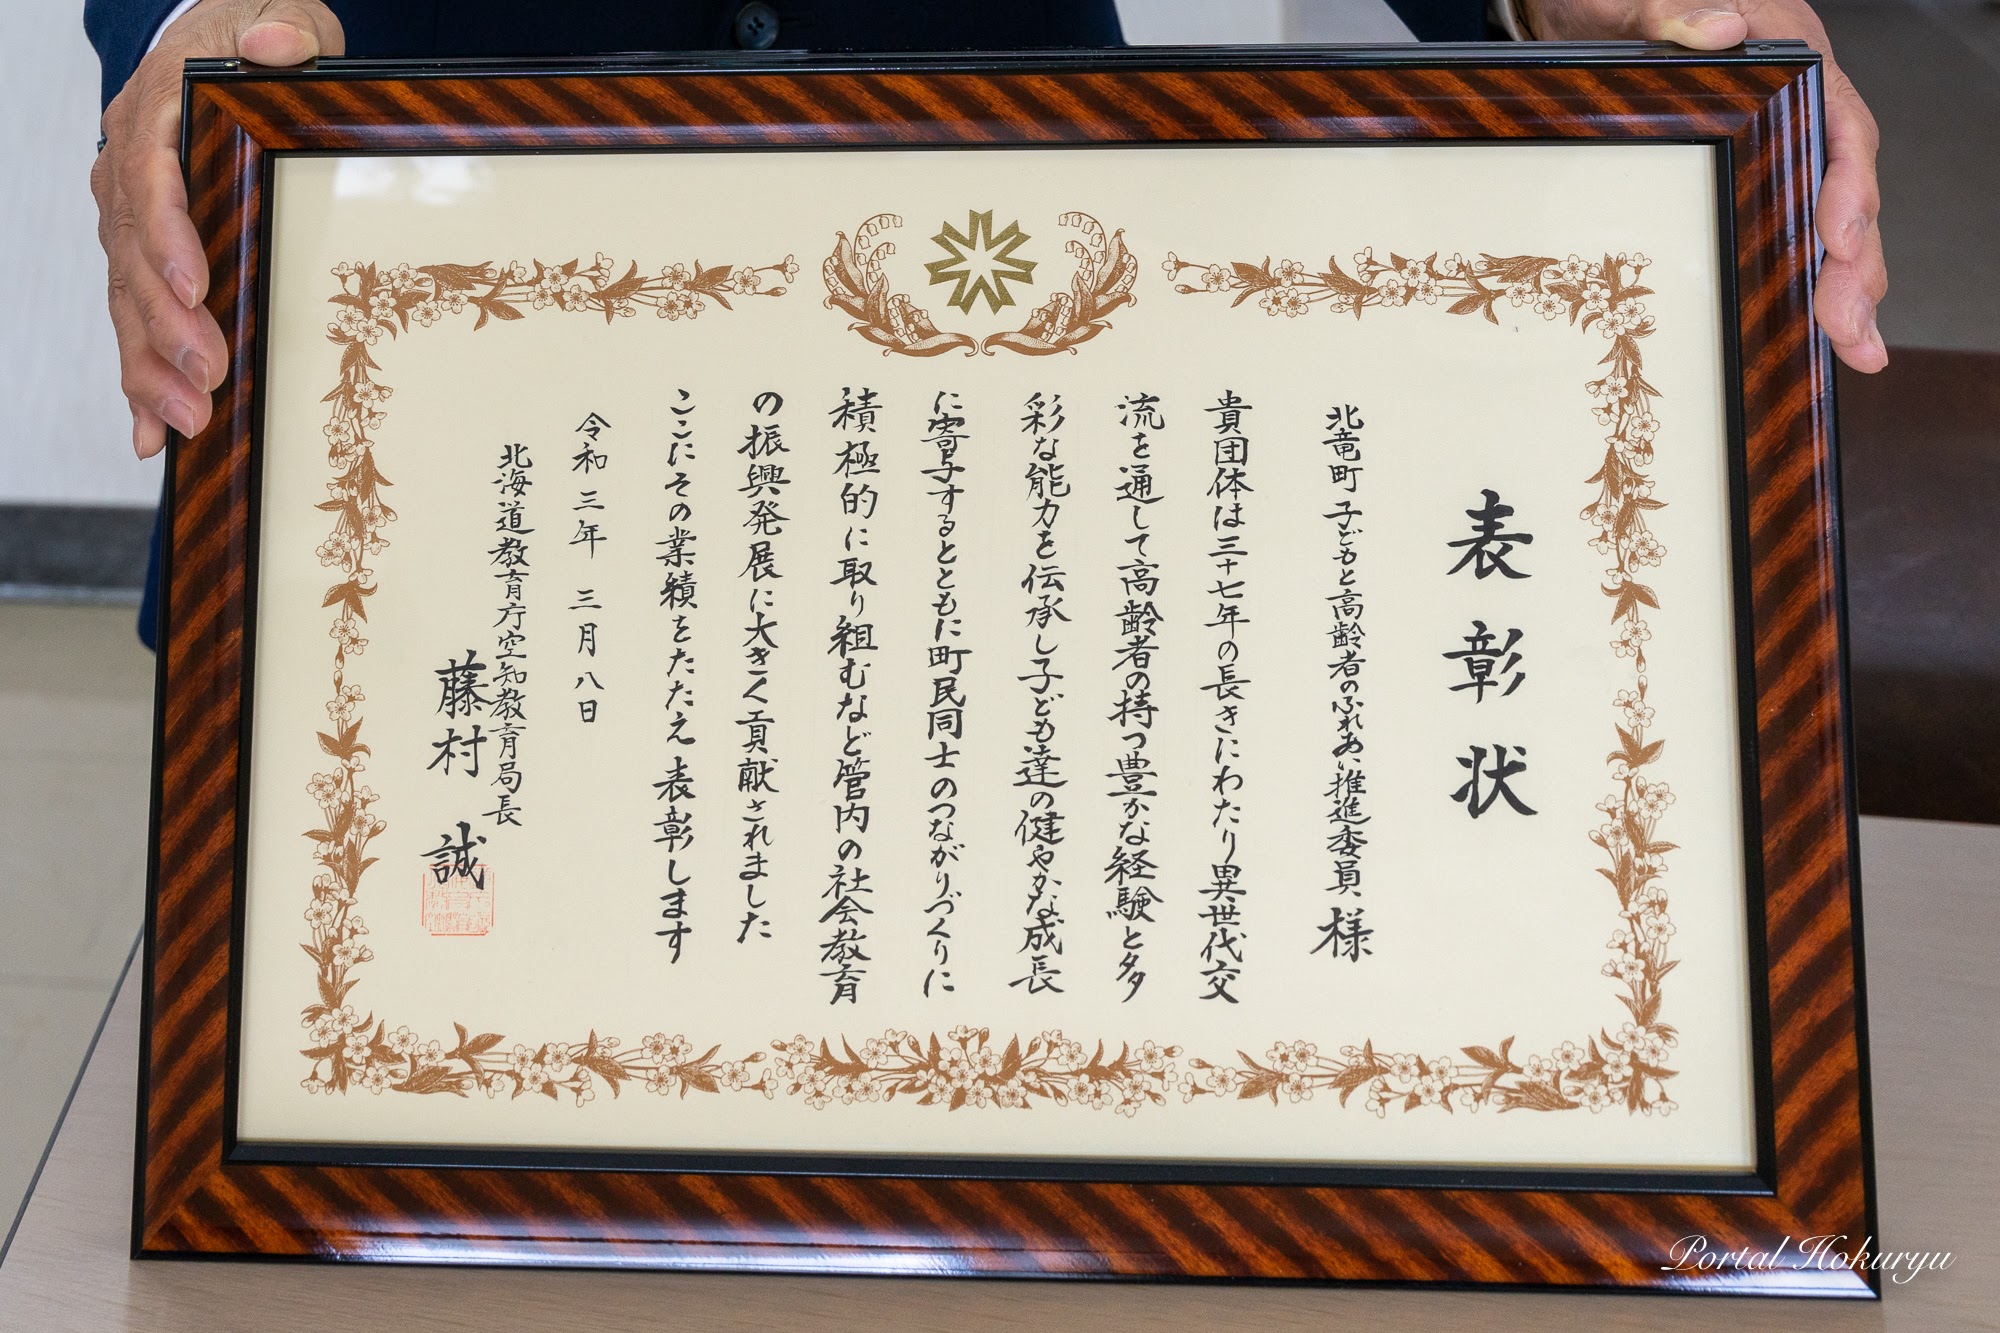 表彰状
北竜町 子どもと高齢者のふれあい推進委員 様
貴団体は三十七年の長きにわたり異世代交
流を通して高齢者の持つ豊かな経験と多
彩な能力を伝承し子ども達の健やかな成長
に寄与するとともに町民同士のつながりづくりに
積極的に取り組むなど管内の社会教育
の振興発展に大きく貢献されました
ここにその業績をたたえ表彰します
令和三年 三月八日
北海道教育庁空知教育局長
藤村 誠
Portal Hokuryu